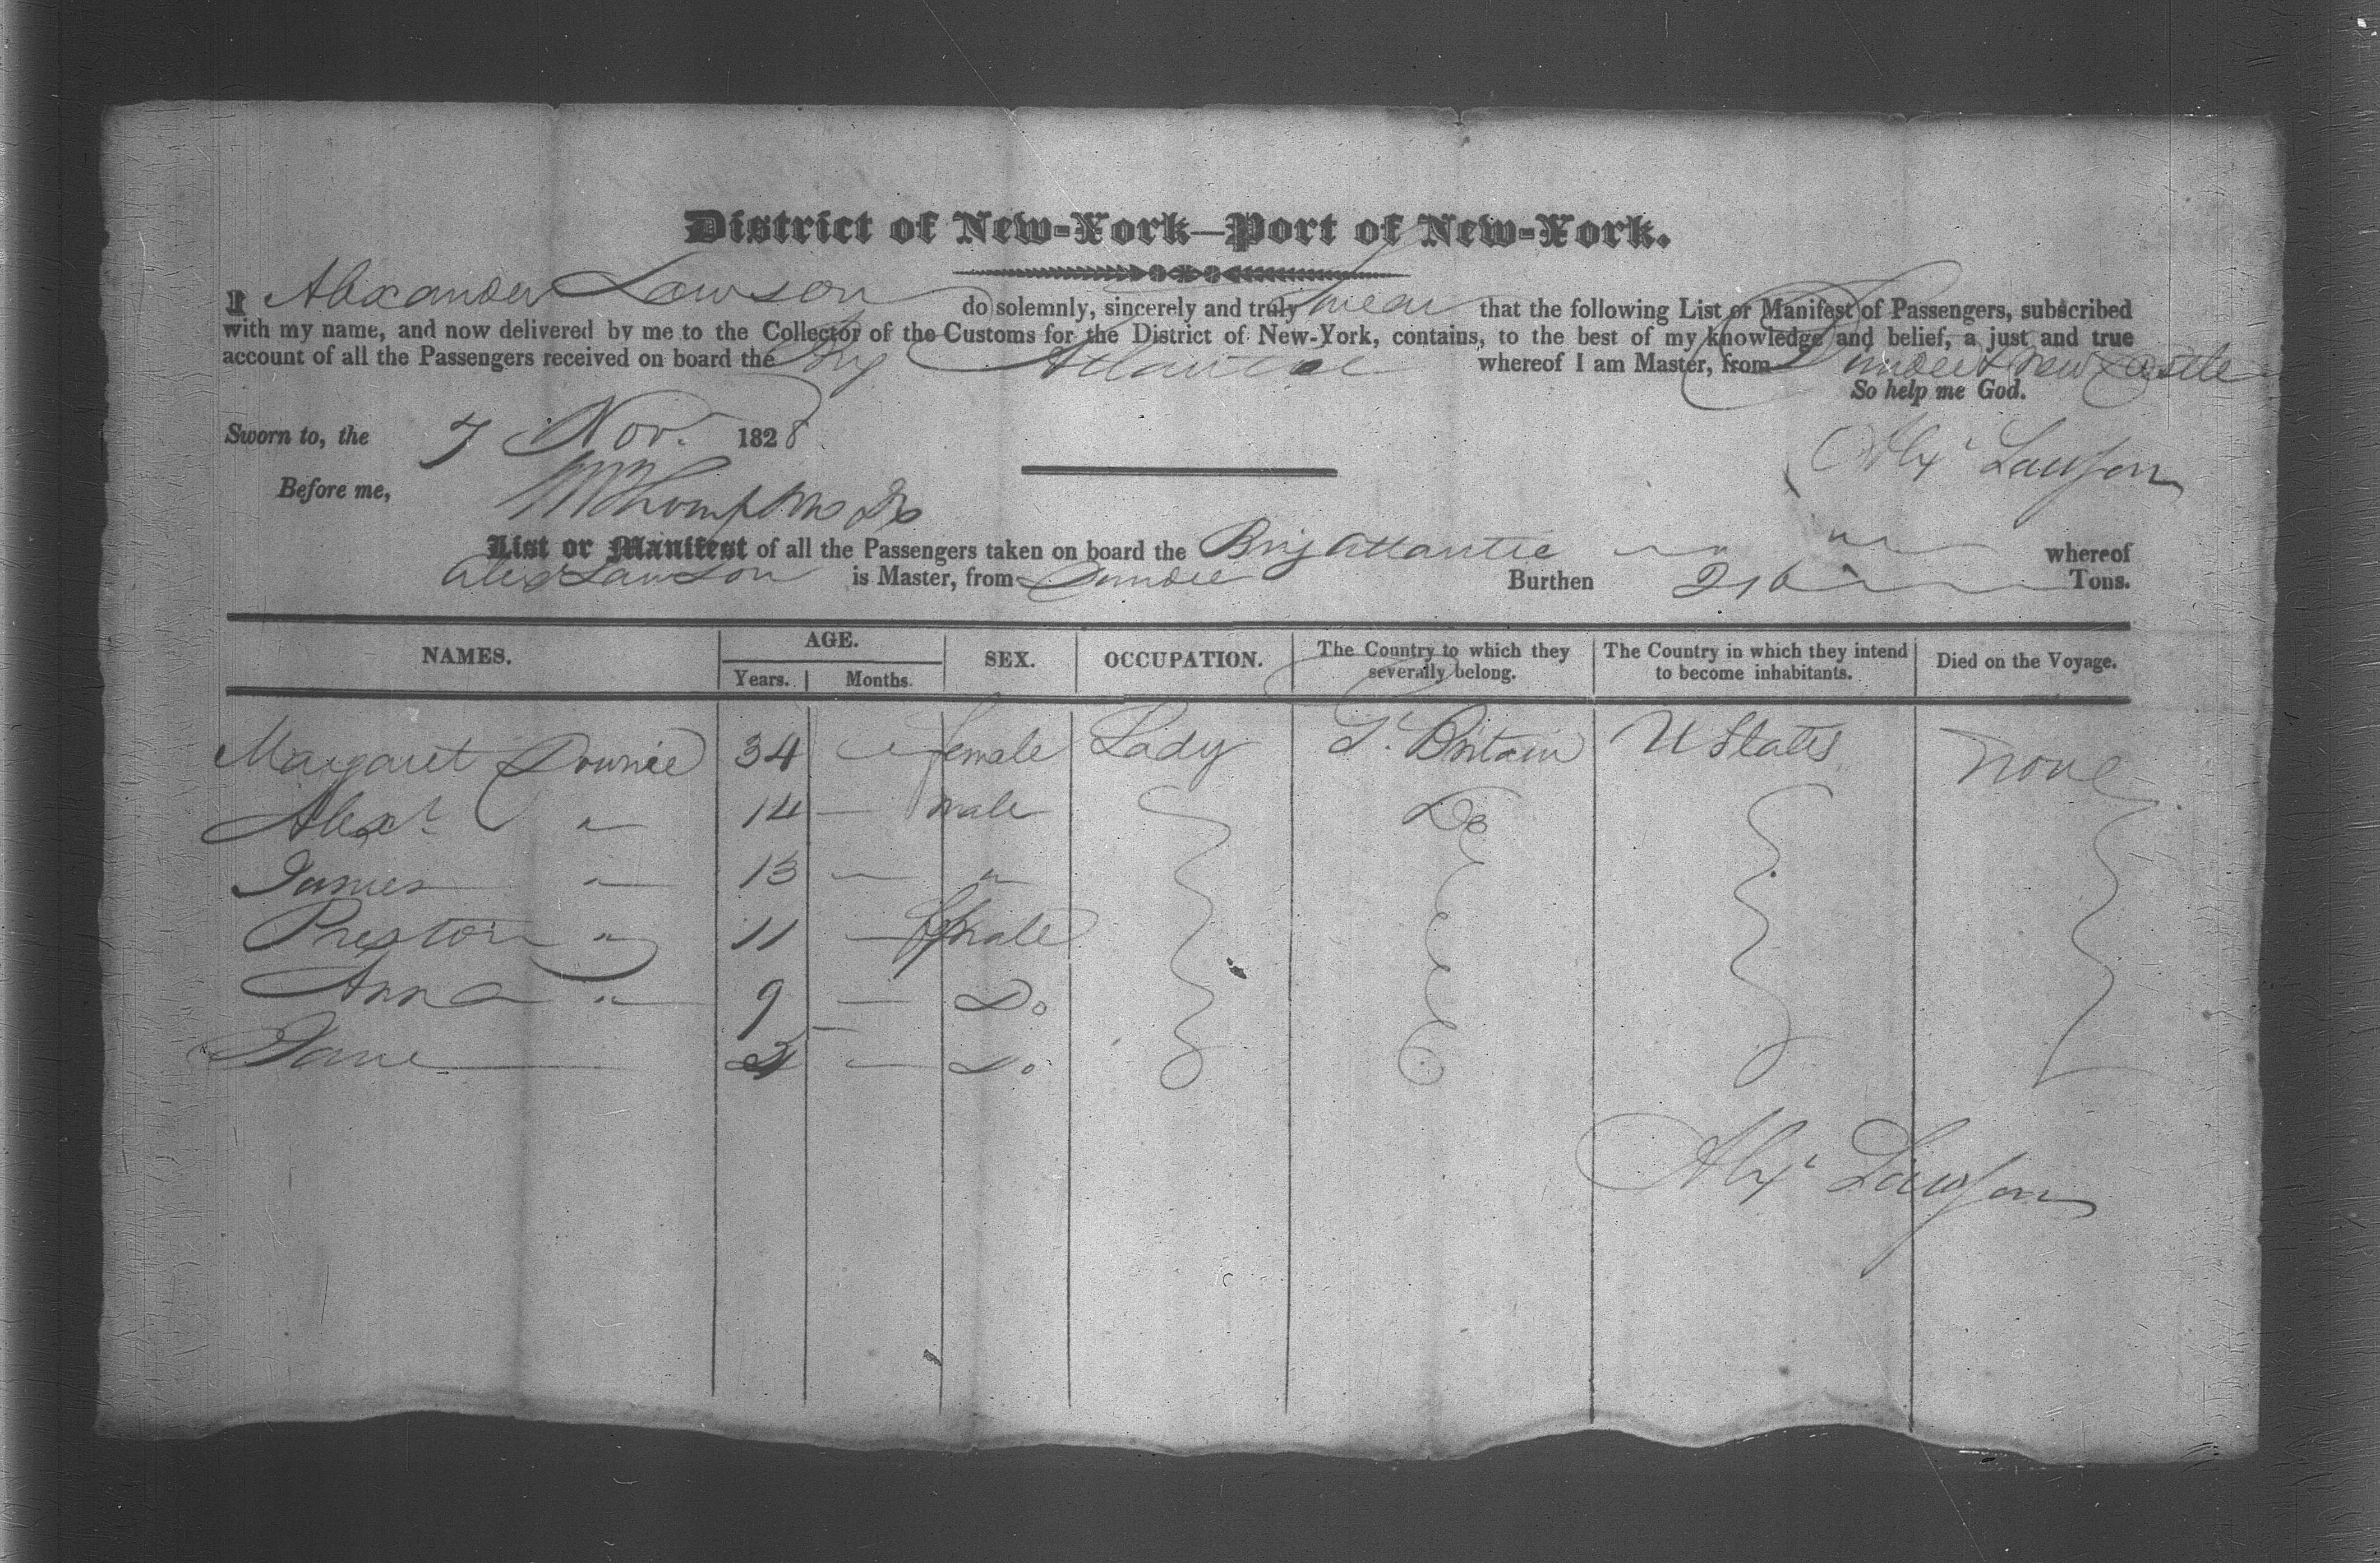 District of New-York—Port of New-York.
I Alexander Lawson do solemnly, sincerely and truly swear that the following List or Manifest of Passengers, subscribed
with my name, and now delivered by me to the Collector of the Customs for the District of New-York, contains, to the best of my knowledge and belief, a just and true
account of all the Passengers received on board the Brig Atlantic whereof I am Master, from Dundee & New Castle
So help me God.
Sworn to, the 7 Nov. 1828
Alexr Lawson
Before me, Thompson
List or Manifest of all the Passengers taken on board the Brig Atlantic whereof
Alexr Lawson is Master, from Dundee Burthen 216 Tons.
NAMES. AGE. Years. Months. SEX. OCCUPATION. The Country to which they severally belong. The Country in which they intend to become inhabitants. Died on the Voyage.
Margaret Downie 34 — female Lady Gt. Britain U States none
Alexr " 14 — male Do
James " 13 — "
Preston " 11 — female
Anna " 9 — Do
Jane — — Do
Alexr Lawson